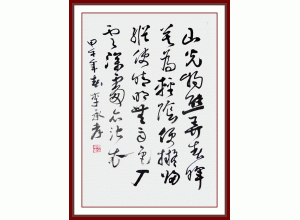 山光物態弄春暉
莫為輕陰便擬歸
縱使晴明無雨色入
雲深處亦沾衣
甲午年春李承